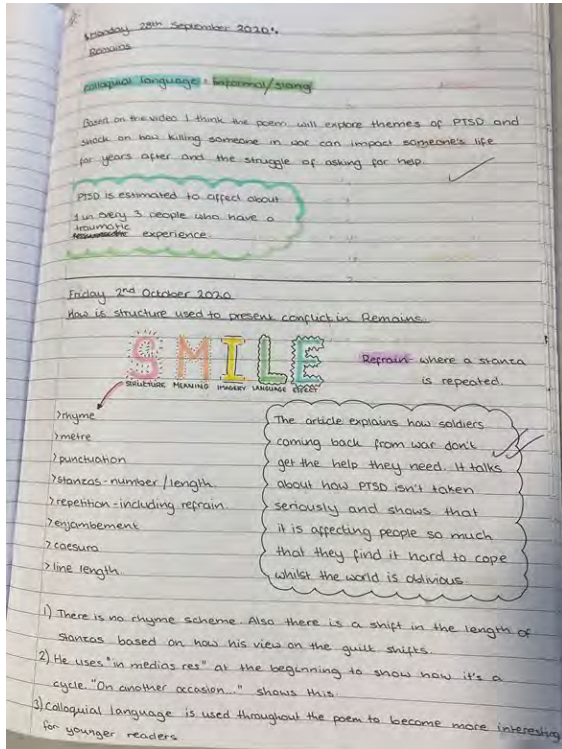 Monday 28th September 2020.
Remains
Colloquial language = Informal/slang
Based on the video I think the poem will explore themes of PTSD and
shock on how killing someone in war can impact someone's life
for years after and the struggle of asking for help.
PTSD is estimated to affect about
1 in every 3 people who have a
traumatic
experience.
Friday 2nd October 2020
How is structure used to present conflict in Remains.
SMILE
STRUCTURE MEANING IMAGERY LANGUAGE EFFECT
Refrain - where a stanza
is repeated.
>rhyme
>metre
>punctuation
>stanzas - number / length.
>repetition - including refrain.
>enjambement
>caesura
>line length
The article explains how soldiers
coming back from war don't
get the help they need. It talks
about how PTSD isn't taken
seriously and shows that
it is affecting people so much
that they find it hard to cope
whilst the world is oblivious.
1) There is no rhyme scheme. Also there is a shift in the length of
stanzas based on how his view on the guilt shifts.
2) He uses "in medias res" at the beginning to show how it's a
cycle. "On another occasion..." shows this.
3) Colloquial language is used throughout the poem to become more interesting
for younger readers